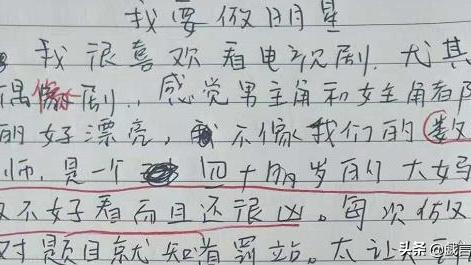 我要做明星
我很喜欢看电视剧.尤其
偶像剧..感觉男主角和女主角都
的好漂亮,不像我们的数
师,是一个四十多岁的大妈
不好看而且还很凶。每次
对题目就知道罚站。太让
头条